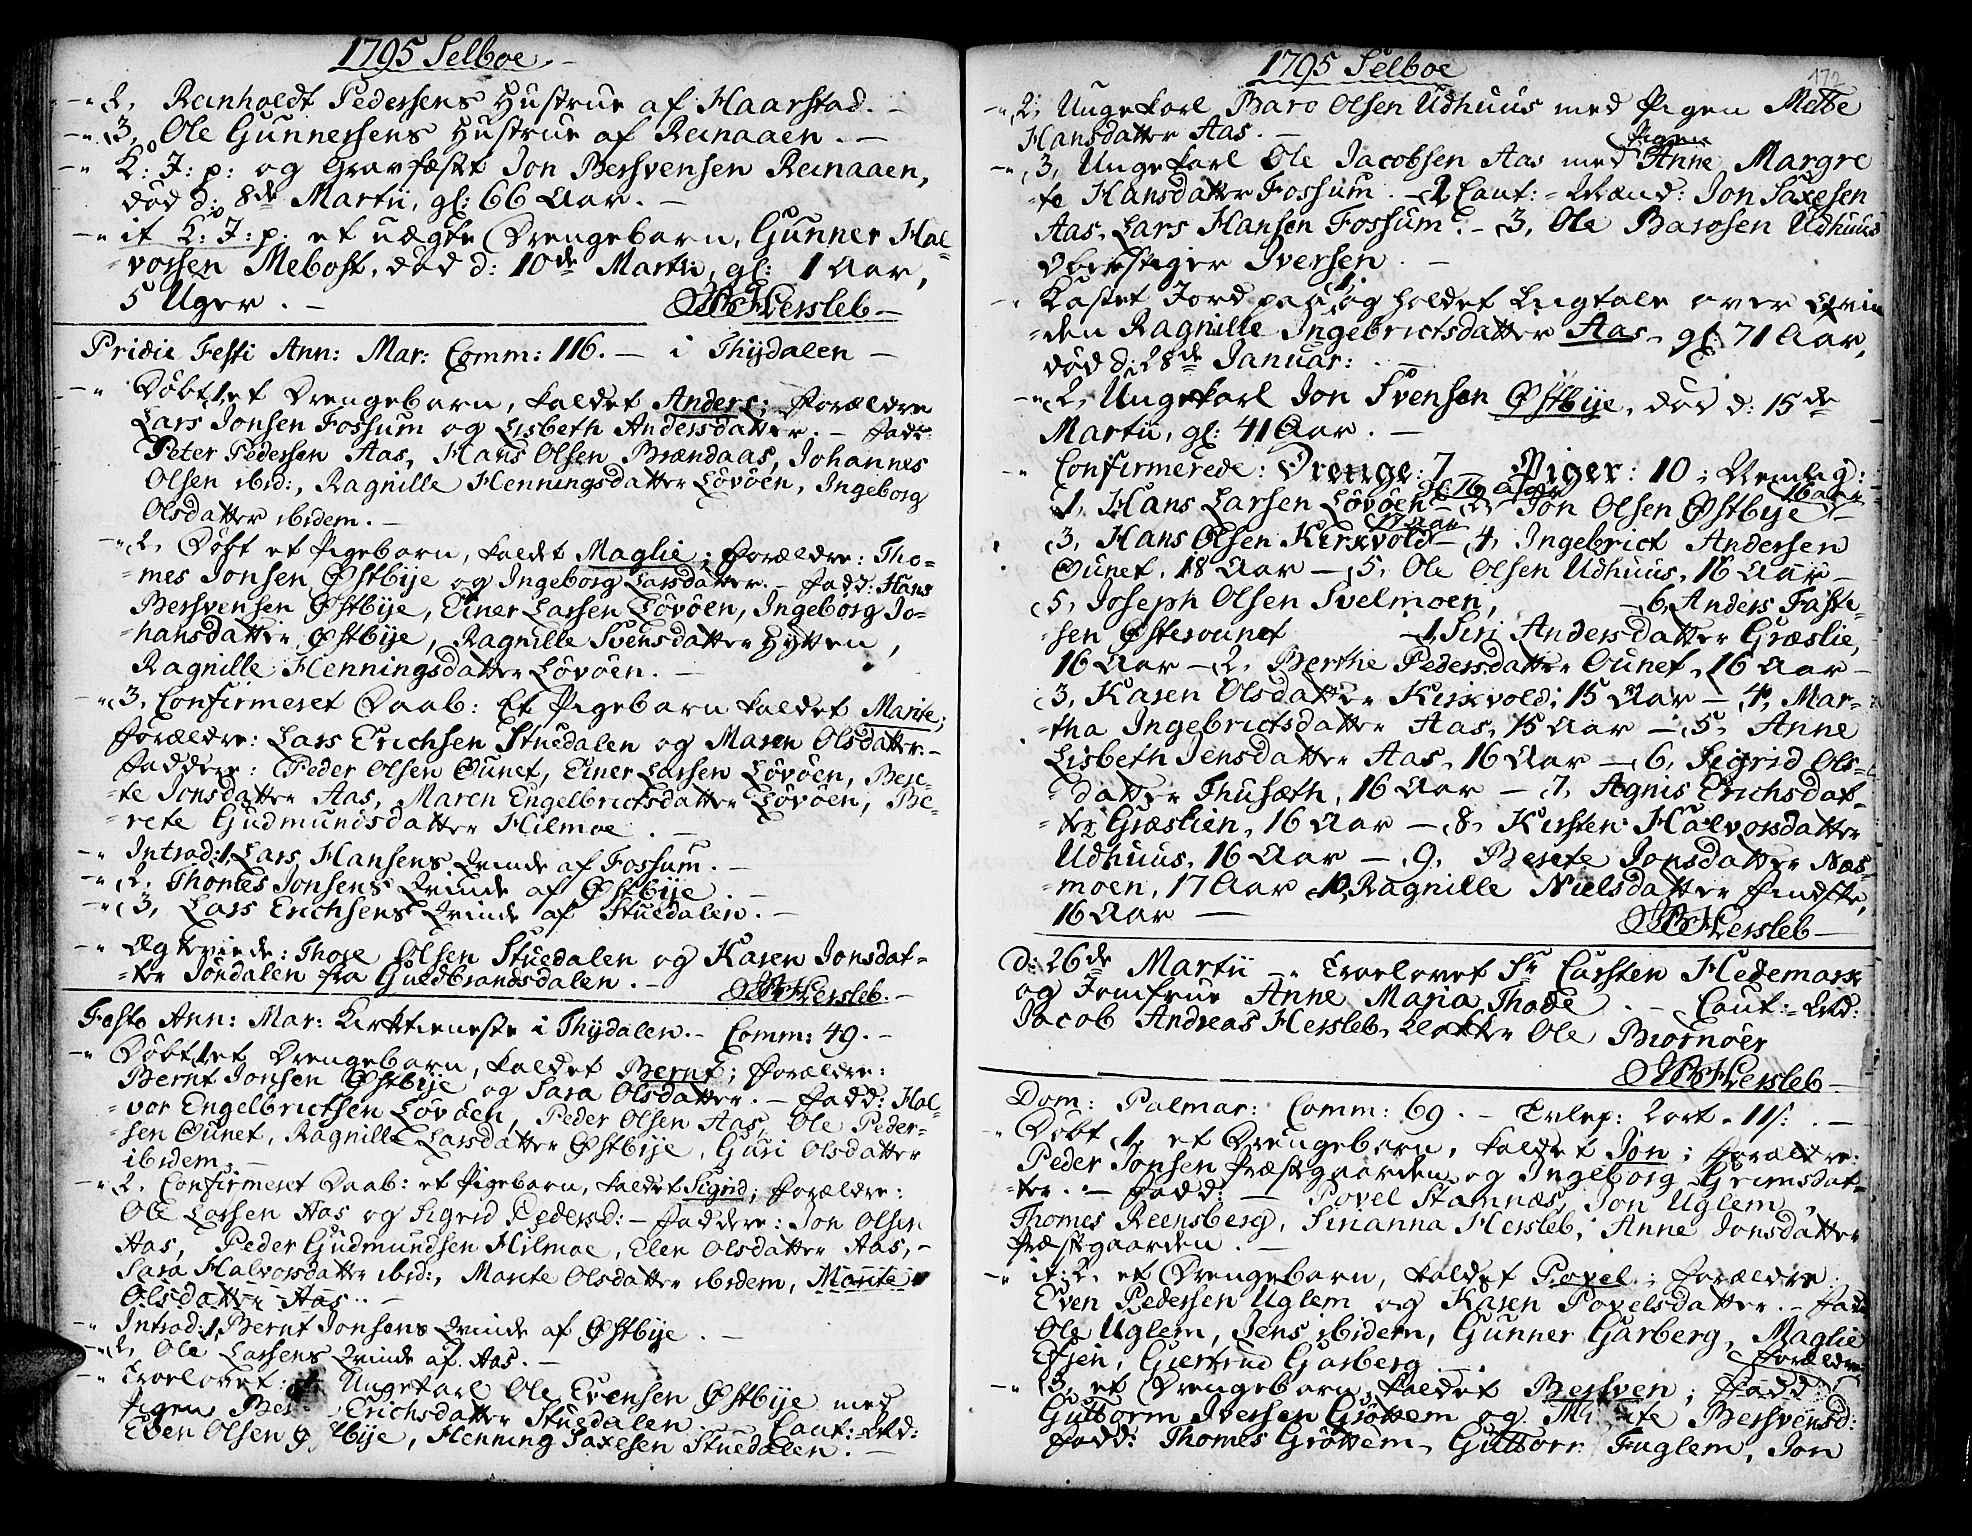 1795 Selboe
2, Reinholdt Pederssens Hustrue af Haarstad. -
3, Ole Gunnerssens Hustrue af Reinaaen. -
K: J: p: og Gravfæstt Jon Bersvensen Reinaaen,
død d: 8de Martii, gl: 66 Aar. -
it K: J: p: et uægte Drengebarn, Gunner Hal-
vorssen Mebost, død d: 10de Martii, gl: 1 Aar,
5 Uger. -
Hersleb
Pridie Festi Ann: Mar: Comm: 116. - i Thydalen -
Døbt 1, et Drengebarn, kaldet Anders; Forældre
Lars Jonsen Fossum og Lisbeth Andersdatter. - Fadd:
Peter Pedersen Aas, Hans Olsen Brændaas, Johannes
Olsen ibid:, Ragnille Henningsdatter Løvøen, Ingeborg
Olsdatter ibidem. -
2, Døbt et Pigebarn, kaldet Maglie; Forældre: Tho-
mes Jonsen Østbye og Ingeborg Larsdatter. - Fadd: Hans
Bersvensen Østbye, Einer Larsen Løvøen, Ingeborg Jo-
hansdatter Østbye, Ragnille Svensdatter Hytten,
Ragnille Henningsdatter Løvøen. -
3, Confirmeret Daab: Et Pigebarn kaldet Marite;
Forældre: Lars Erichsen Stuedalen og Maren Olsdatter. -
Faddere: Peder Olsen Ounet, Einer Larsen Løvøen, Bere-
te Jonsdatter Aas, Maren Engelbrictsdatter Løvøen, Be-
rete Gudmundsdatter Hilmoe. -
Introd: 1, Lars Hansens Qvinde af Fossum. -
2, Thomes Jonsens Qvinde af Østbye. -
3, Lars Erichsens Qvinde af Stuedalen. -
Ægteviede: Thore Olsen Stuedalen og Karen Jonsdat-
ter Jøndalen fra Guedbrandsdalen. -
Hersleb. -
Festo Ann: Mar: Kirktieneste i Thydalen. - Comm: 49. -
Døbt 1, et Drengebarn, kaldet Bernt; Forældre:
Bernt Jonsen Østbye og Sara Olsdatter. - Fadd: Hal-
vor Engelbrictsen Løvøen, Peder Olsen Aas, Ole Peder-
sen Ounet, Ragnille Larsdatter Østbye, Guri Olsdatter
ibidem. -
2, Confirmeret Daab: et Pigebarn, kaldet Sigrid; Forældre:
Ole Larsen Aas og Sigrid Pedersd: - Faddere: Jon Olsen
Aas, Peder Gudmundsen Hilmoe, Elen Olsdatter Aas, -
Sara Halvorsdatter ibid:, Marite Olsdatter ibidem, Marite
Olsdatter Aas. -
Introd: 1, Bernt Jonsens Qvinde af Østbye. -
2, Ole Larsens Qvinde af Aas. -
Troelovet: Ungekarl Ole Evensen Østbye med
Pigen Erichsdatter Stuedalen. - Caut:
Even Olsen Henning Saxesen Stuedalen. -
1795 Selboe
172
2, Ungekarl Baro Olsen Udhuus med Pigen Mette
Hansdatter Aas. -
Pigen
3, Ungekarl Ole Jacobsen Aas med Anne Margre
te Hansdatter Fossum. - 2 Caut: Mænd: Jon Saxesen
Aas, Lars Hansen Fossum. - 3, Ole Barosen Udhuus
Oberstiger Iversen. -
Kastet Jord paa 1, og holdet Liigtale over Qvin
den Ragnille Ingebrictsdatter Aas, gl: 71 Aar,
død d: 28de Januar: -
2, Ungekarl Jon Svensen Østbye, død d: 15de
Martii, gl: 41 Aar. -
Confirmerede: Drenge: 7 - Piger: 10; Nemlig:
gl: 16 Aar
16 Aar
1, Hans Larsen Løvøen - 2, Jon Olsen Østbye -
17 Aar
3, Hans Olsen Kirkvold - 4, Ingebrict Andersen
Ounet, 18 Aar - 5, Ole Olsen Udhuus, 16 Aar -
5, Joseph Olsen Svelmoen, - 6, Anders Faste-
sen Østerounet - 1, Siri Andersdatter Græslie,
16 Aar - 2, Berthe Pedersdatter Ounet, 16 Aar -
3, Karen Olsdatter Kirkvold, 15 Aar - 4, Mar-
tha Ingebrictsdatter Aas, 15 Aar - 5, Anne
Lisbeth Jensdatter Aas, 16 Aar - 6, Sigrid Ols-
datter Thusæth, 16 Aar - 7, Agnis Erichsdat-
ter Græslien, 16 Aar - 8, Kirsten Halvorsdatter
Udhuus, 16 Aar - 9, Berete Jonsdatter Næs-
moen, 17 Aar 10, Ragnille Nielsdatter
16 Aar -
Hersleb
D: 26de Martii - Troelovet Sr Carsten Hedemark
og Jomfrue Anne Maria Thode. - Caut:
Jacob Andreas Hersleb, Ole Biørnøer
Hersleb
Dom: Palmar: Comm: 69. -
Døbt 1, et Drengebarn, kaldet Jon; Forældre:
Peder Jonsen Præstgaarden og Ingeborg Grimsdat-
ter. - Fadd: - Povel Stamnæs, Jon Uglem,
Thomes Reensberg, Sinanna Hersleb, Anne Jonsdatter
Præstgaarden. -
it: 2, et Drengebarn, kaldet Povel; Forældre
Even Pedersen Uglem og Karen Povelsdatter. - Fadd
Ole Uglem, Jens ibidem, Gunner Garberg, Maglie
Forældre:
Efsen, Giertrud Garberg -
3, et Drengebarn, kaldet Bersven; Fadd:
Guttorm Iversen Grøttem og Bersvensd:
Fadd: Thomes Grøttem, Guttorm Fuglem, Jon